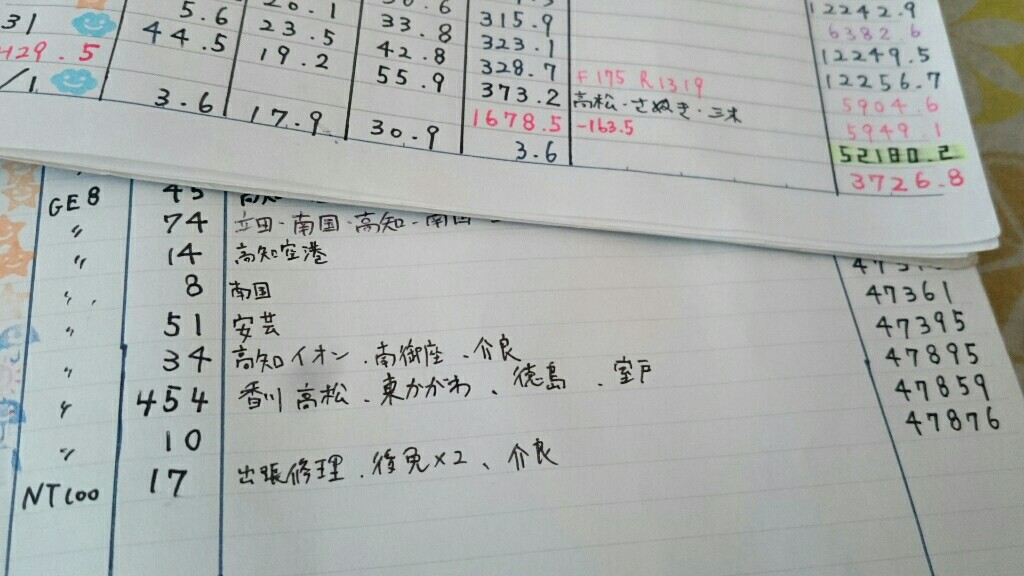 5.6 20.1 30.6 315.9 12242.9
31 44.5 23.5 33.8 323.1 6382.6
429.5 19.2 42.8 328.7 F175 R1319 12249.5
/1 55.9 373.2 高松・さぬき・三木 12256.7
3.6 17.9 30.9 1678.5 -163.5 5904.6
3.6 5949.1
52180.2
3726.8
GE8 45
〃 74 立田・南国・高知・南国
〃 14 高知空港
〃 8 南国 47361
〃 51 安芸 47395
〃 34 高知イオン、南御座、介良 47895
〃 454 香川 高松、東かがわ、徳島、室戸 47859
〃 10 47876
NT100 17 出張修理、後免×2、介良